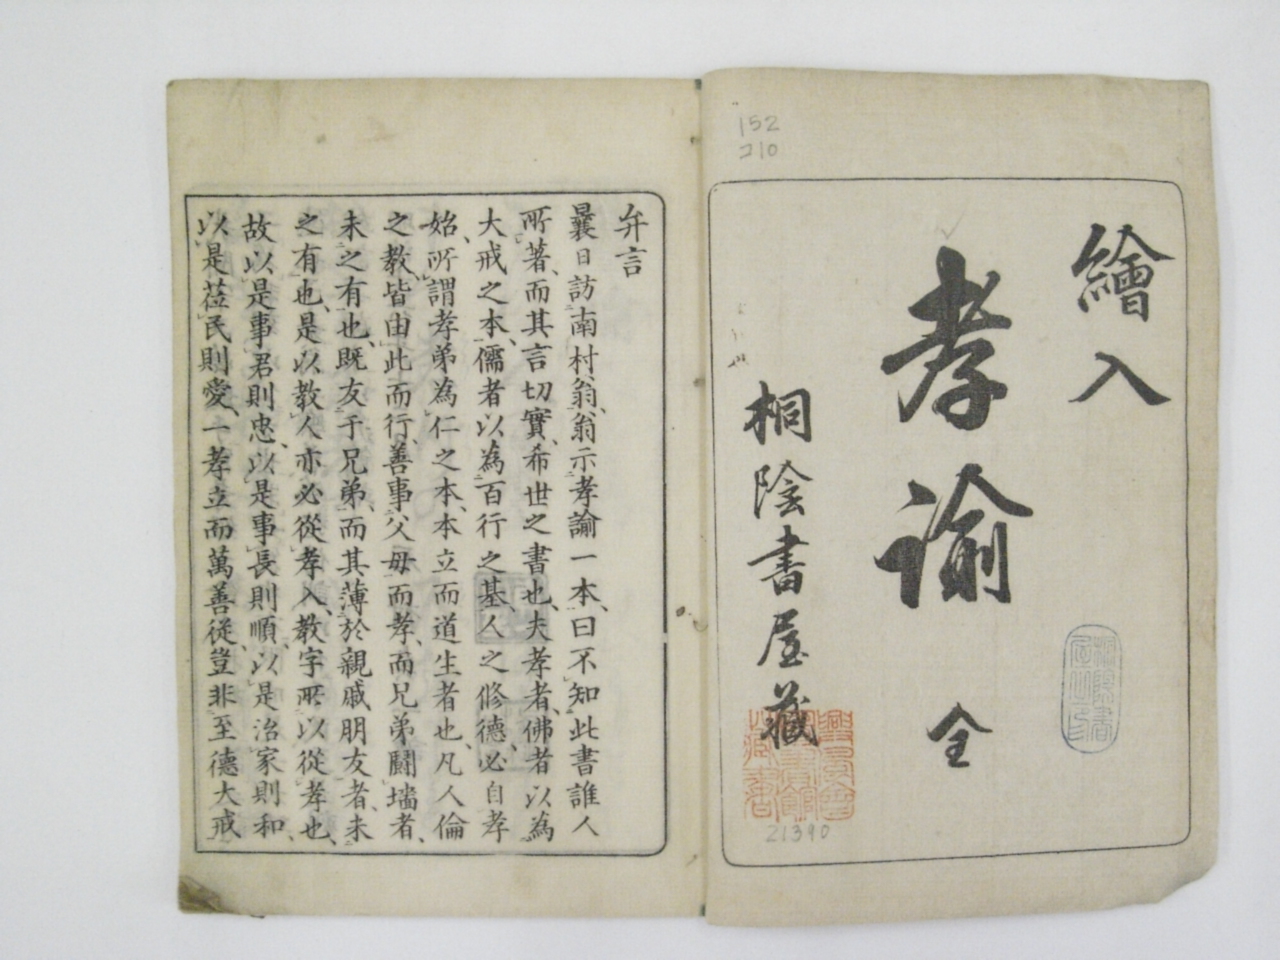 152
210
繪入
孝諭 全
桐陰書屋藏
21390
弁言
曩日訪南村翁、翁示孝諭一本、曰不知此書誰人
所著、而其言切實、希世之書也、夫孝者、佛者以為
大戒之本、儒者以為百行之基、人之修德、必自孝
始、所謂孝弟為仁之本、本立而道生者也、凡人倫
之教、皆由此而行、善事父母而孝、而兄弟鬪墻者、
未之有也、既友于兄弟、而其薄於親戚朋友者、未
之有也、是以教人亦必從孝入、教字所以從孝也、
故以是事君則忠、以是事長則順、以是治家則和、
以是莅民則愛、一孝立而萬善從、豈非至德大戒